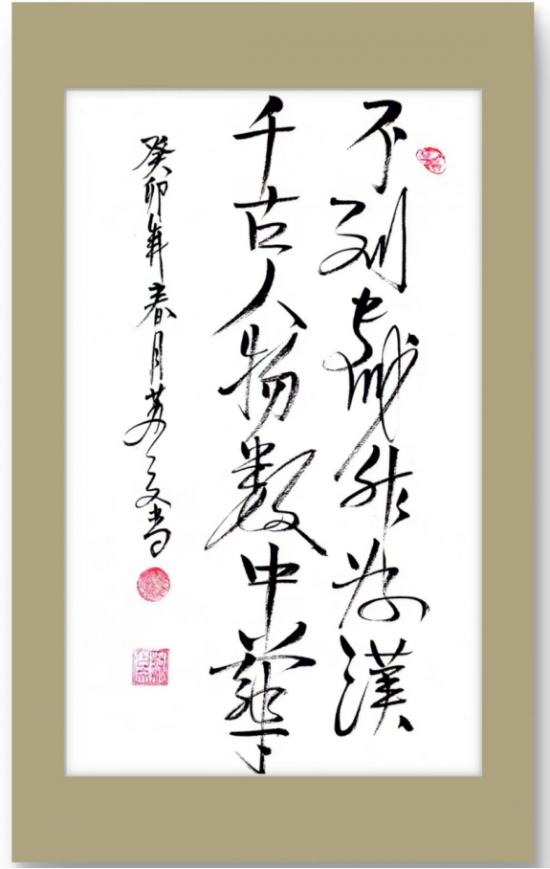 不到長城非好漢
千古人物数中華
癸卯年春月